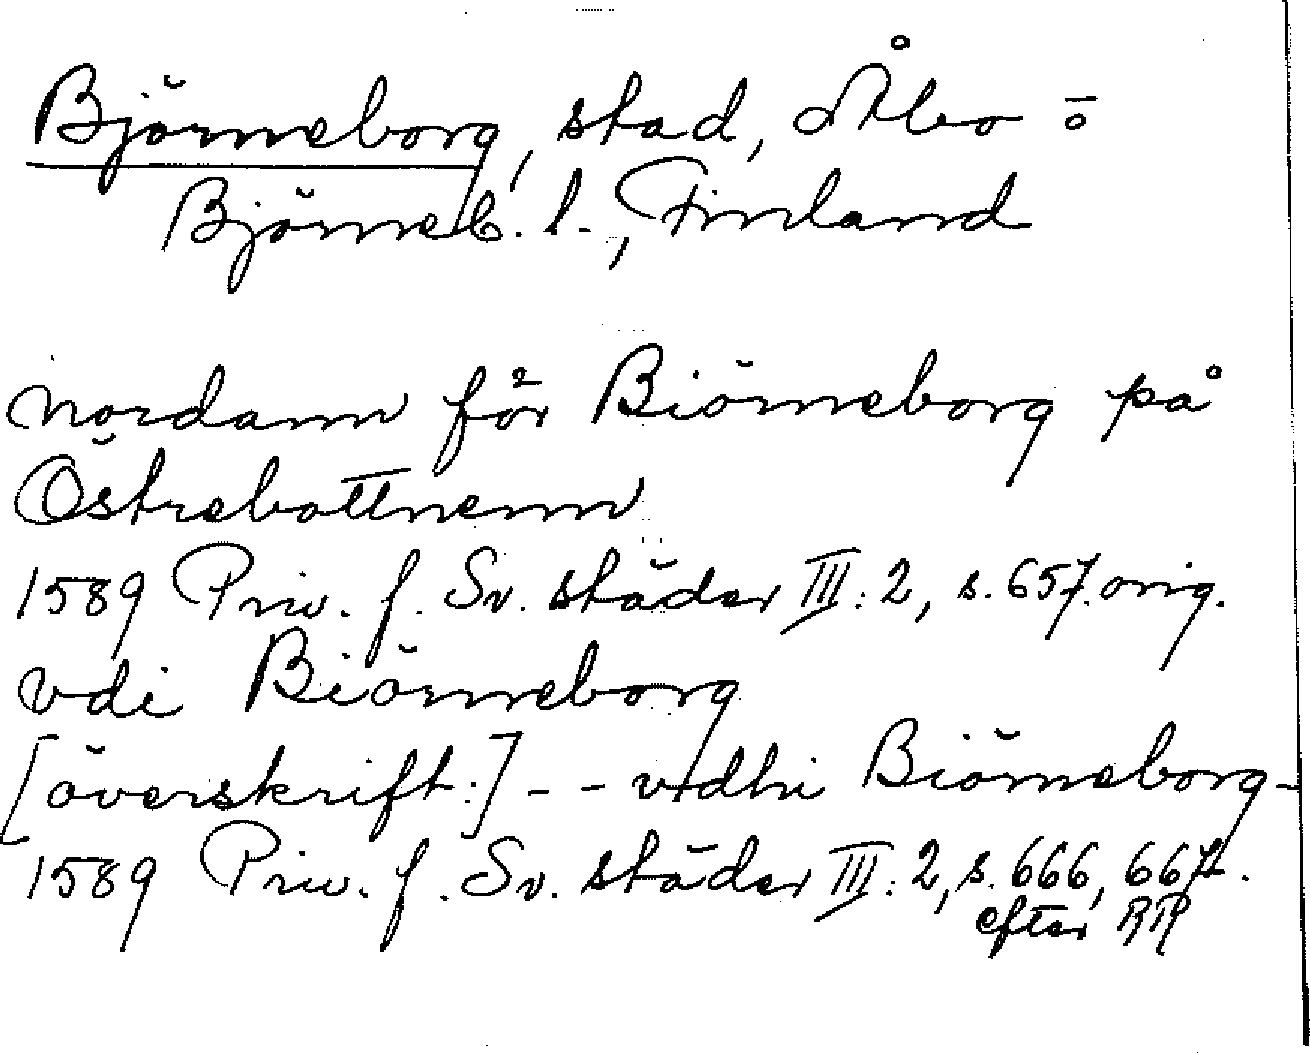 Björneborg, stad, Åbo ō
Björneb. l., Finland
nordann för Biörneborg på
Östrebottnenn
1589 Priv. f. Sv. städer III: 2, s. 657. orig.
vdi Biörneborg
[överskrift:] - - vdhi Biörneborg -
1589 Priv. f. Sv. städer III: 2, s. 666, 667.
efter RR